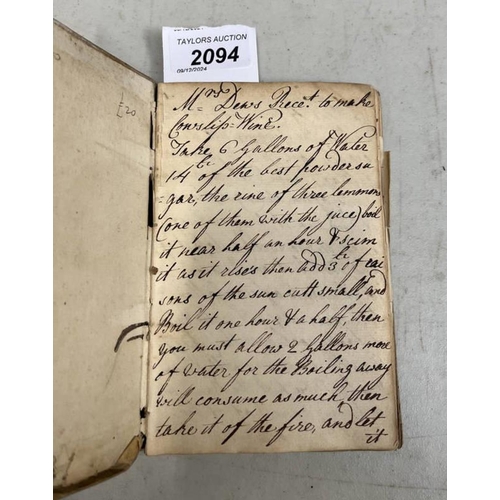 TAYLORS AUCTION
2094
09/12/2024
£20
Mrs Dews Recet. to make
Cowslip=Wine.
Take 6 Gallons of Water
14 lb of the best powder su
=gar, the rine of three lemmons
(one of them with the juce) boil
it near half an hour & scim
it as it rises then add 3 lb of rai
sons of the sun cutt small, and
Boil it one hour & a half, then
you must allow 2 Gallons more
of water for the Boiling away
will consume as much, then
take it of the fire, and let
it